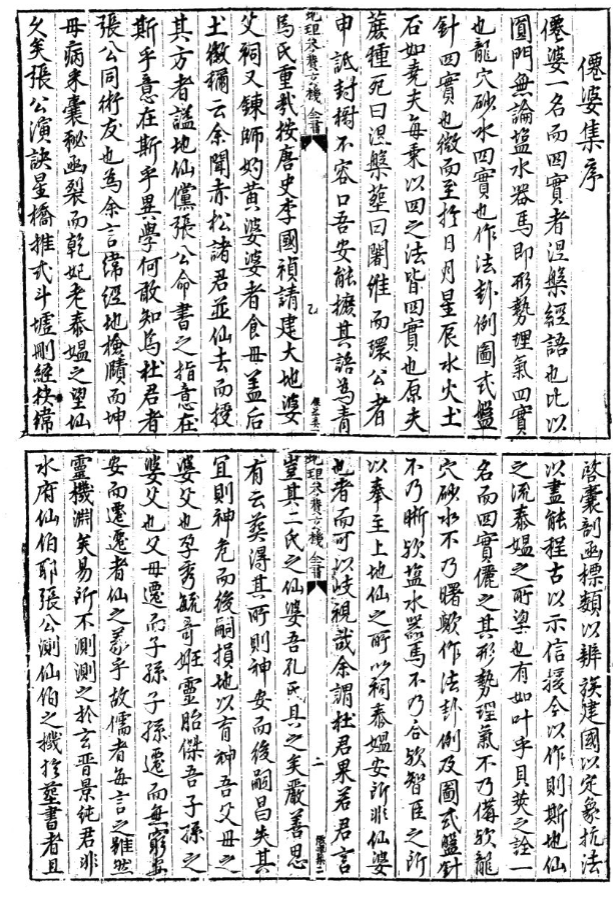 僊婆集序
僊婆一名而四實者涅槃經語也比以
圓門無論塩水器馬即形勢理氣四實
也龍穴砂水四實也作法卦例圖式盤
針四實也微而至於日月星辰水火土
石如堯夫每乗以四之法皆四實也原夫
蘐種死曰涅槃塟曰闍維而環公者
申詆封樹不容口吾安能擴其語為青
地理參賛玄機僊婆集
烏氏重哉按唐史李國禎請建大地婆
父祠又鍊師妁黄婆婆者食母盖后
土徽稱云余聞赤松諸君並仙去而授
其方者謚地仙儻張公命書之指意在
斯乎意在斯乎異學何敢知為杜君者
張公同術友也為余言偉經地搶牘而坤
母病來囊秘凾裂而乾妃老泰媼之望仙
久矣張公演訣星橋推式斗墟剛經按偉
啓囊剖凾標類以辨族建國以定象抗法
以盡能程古以示信援今以作則斯地仙
之流泰媼之所望也有如叶乎貝莢之詮一
名而四實儷之其形勢理氣不乃備歟龍
穴砂水不乃曙歟作法卦例及圖式盤針
不乃晰歟塩水器馬不乃合歟智臣之所
以奉主上地仙之所以祠泰媼安所非仙婆
也者而可以歧視哉余謂杜君果若君言
豈其二氏之仙婆吾孔氏具之矣嚴善思
有云葬得其所則神安而後嗣昌失其
宜則神危而後嗣損地以有神吾父母之
婆父也孕秀毓竒姙靈胎傑吾子孫之
婆父也父母遷而子孫子孫遷而無窮婆
安而遷遷者仙之義乎故儒者每言之雖然
靈機淵矣易所不測測之於玄晋景純君非
水府仙伯耶張公測仙伯之機於塟書者且